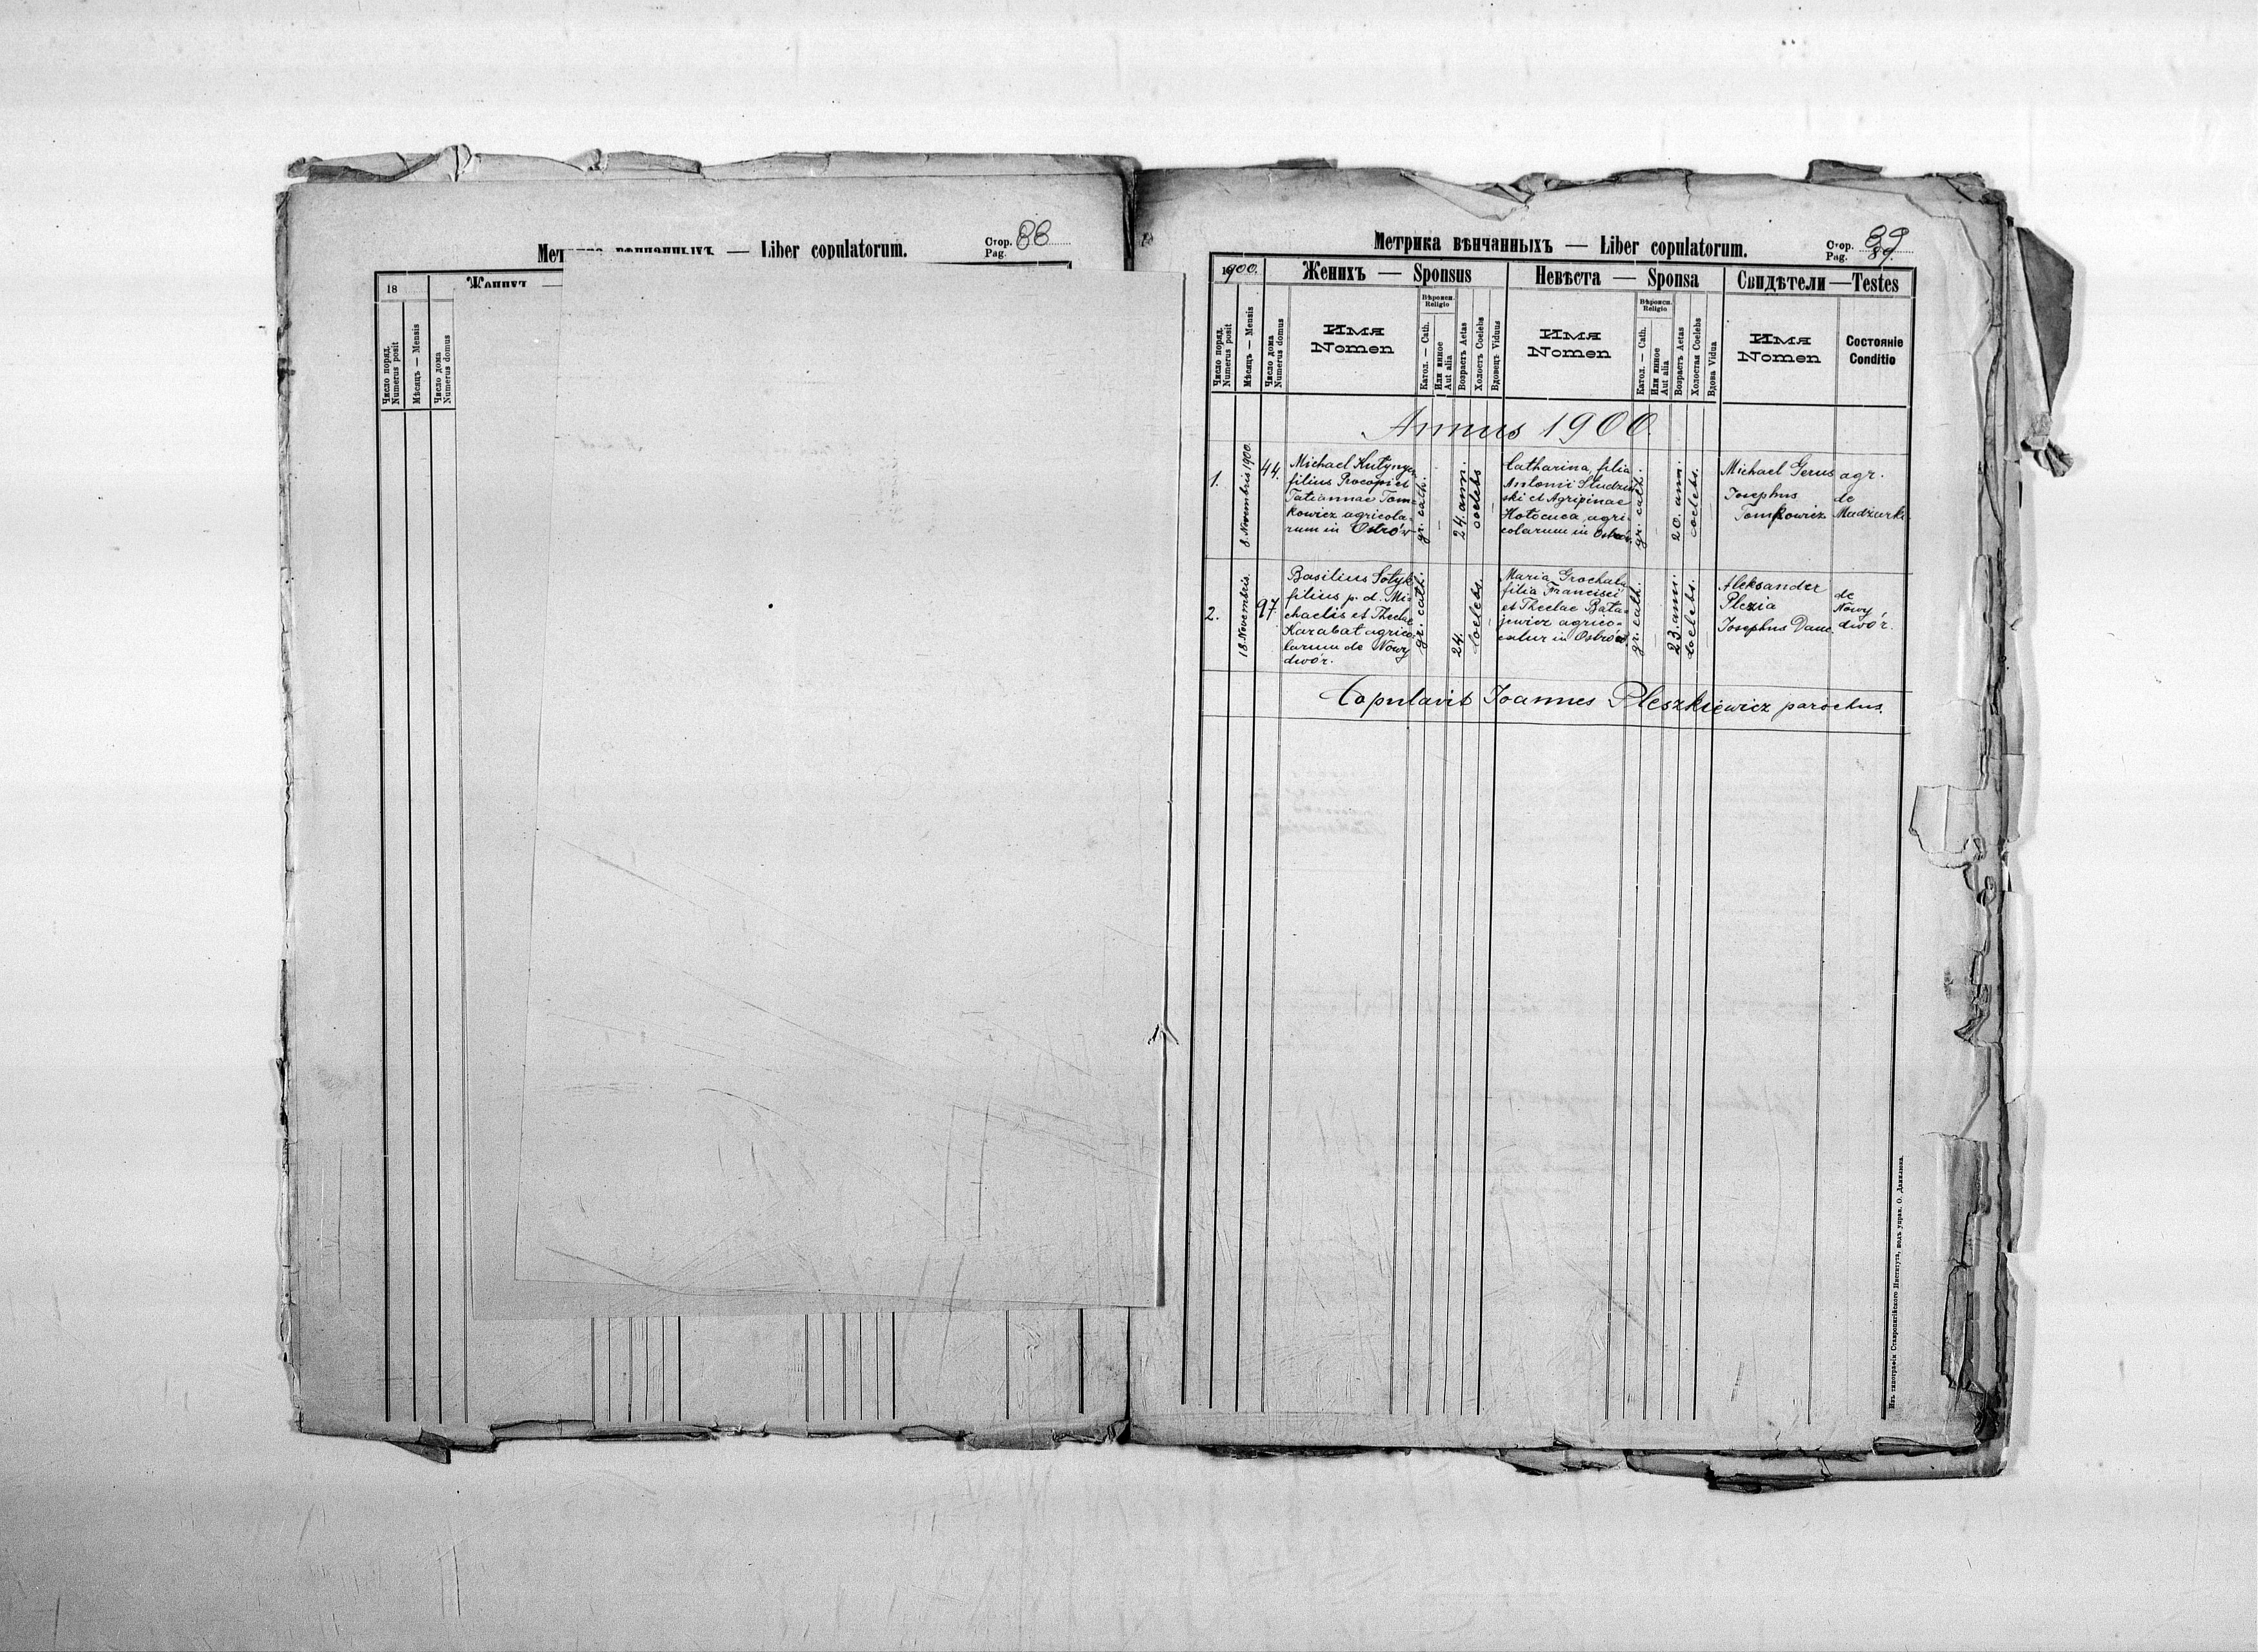 — Liber copulatorum.
Стор. 88
Pag.
18
Число поряд.
Numerus posit
Мѣсяцъ — Mensis
Число дома
Numerus domus
Метрика вѣнчанныхъ — Liber copulatorum.
Стор. 89
Pag. 89.
1900.
Женихъ — Sponsus
Невѣста — Sponsa
Свидѣтели — Testes
Число поряд.
Numerus posit
Мѣсяцъ — Mensis
Число дома
Numerus domus
Имя
Nomen
Вѣроисп.
Religio
Катол. — Cath.
Или инное
Aut alia
Возрастъ Aetas
Холостъ Coelebs
Вдовецъ Viduus
Имя
Nomen
Вѣроисп.
Religio
Катол. — Cath.
Или инное
Aut alia
Возрастъ Aetas
Холостая Coelebs
Вдова Vidua
Имя
Nomen
Состояніе
Conditio
Annus 1900.
1.
8. Novembris 1900.
44.
Michael
filius Procopii et
Tatiannae Tom-
kowicz agricola-
rum in Ostrów
gr. cath.
24. ann.
coelebs
Catharina, filia
Antonii Studzin
ski et Agripinae
agri-
colarum in Ostrów.
gr. cath.
20. ann.
coelebs.
Michael Gerus agr.
Josephus de
Tomkowicz
2.
18. Novembris.
97.
Basilius Sołyk
filius p. d. Mi-
chaelis et Theclae
Karabat agrico-
larum de Nowy
dwór.
gr. cath.
24.
Coelebs.
Maria Grochala
filia Francisci
et Theclae Bata-
jewicz agrico-
in Ostrów
gr. cath.
23. ann.
Coelebs.
Aleksander
Plezia
Josephus Danc.
de
Nowy
dwór.
Copulavit Joannes Pleszkiewicz parochus.
Изъ типографіи Ставропигійского Института, подъ управ. О. Данилюка.